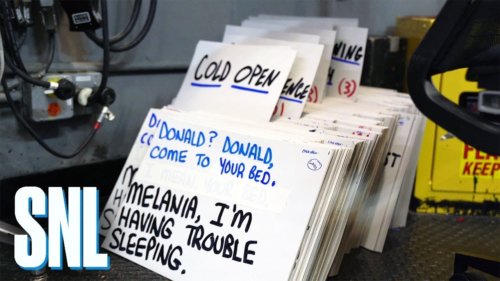 COLD OPEN
ENCE
NING
(3)
(3)
DONALD? DONALD,
COME TO YOUR BED.
MELANIA, I'M
HAVING TROUBLE
SLEEPING.
KEEP
SNL